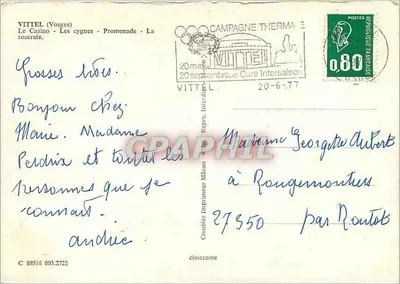 VITTEL (Vosges)
Le Casino - Les cygnes - Promenade - La
roseraie.
CAMPAGNE THERMALE
VITTEL
20 mai
20 septembre et Cure Intersaison
VITTEL
20-6-77
POSTES
REPUBLIQUE FRANCAISE
0,80
Grosses bises.
Bonjour chez
Marie. Madame
Perdrix et toutes les
personnes que je
connait.
andrée
Madame Georgette Aubert
à Rougemontiers
27350 par Routot
Combier Imprimeur Mâcon
CPAPHIL
C 88516 003.2722
cimcrome